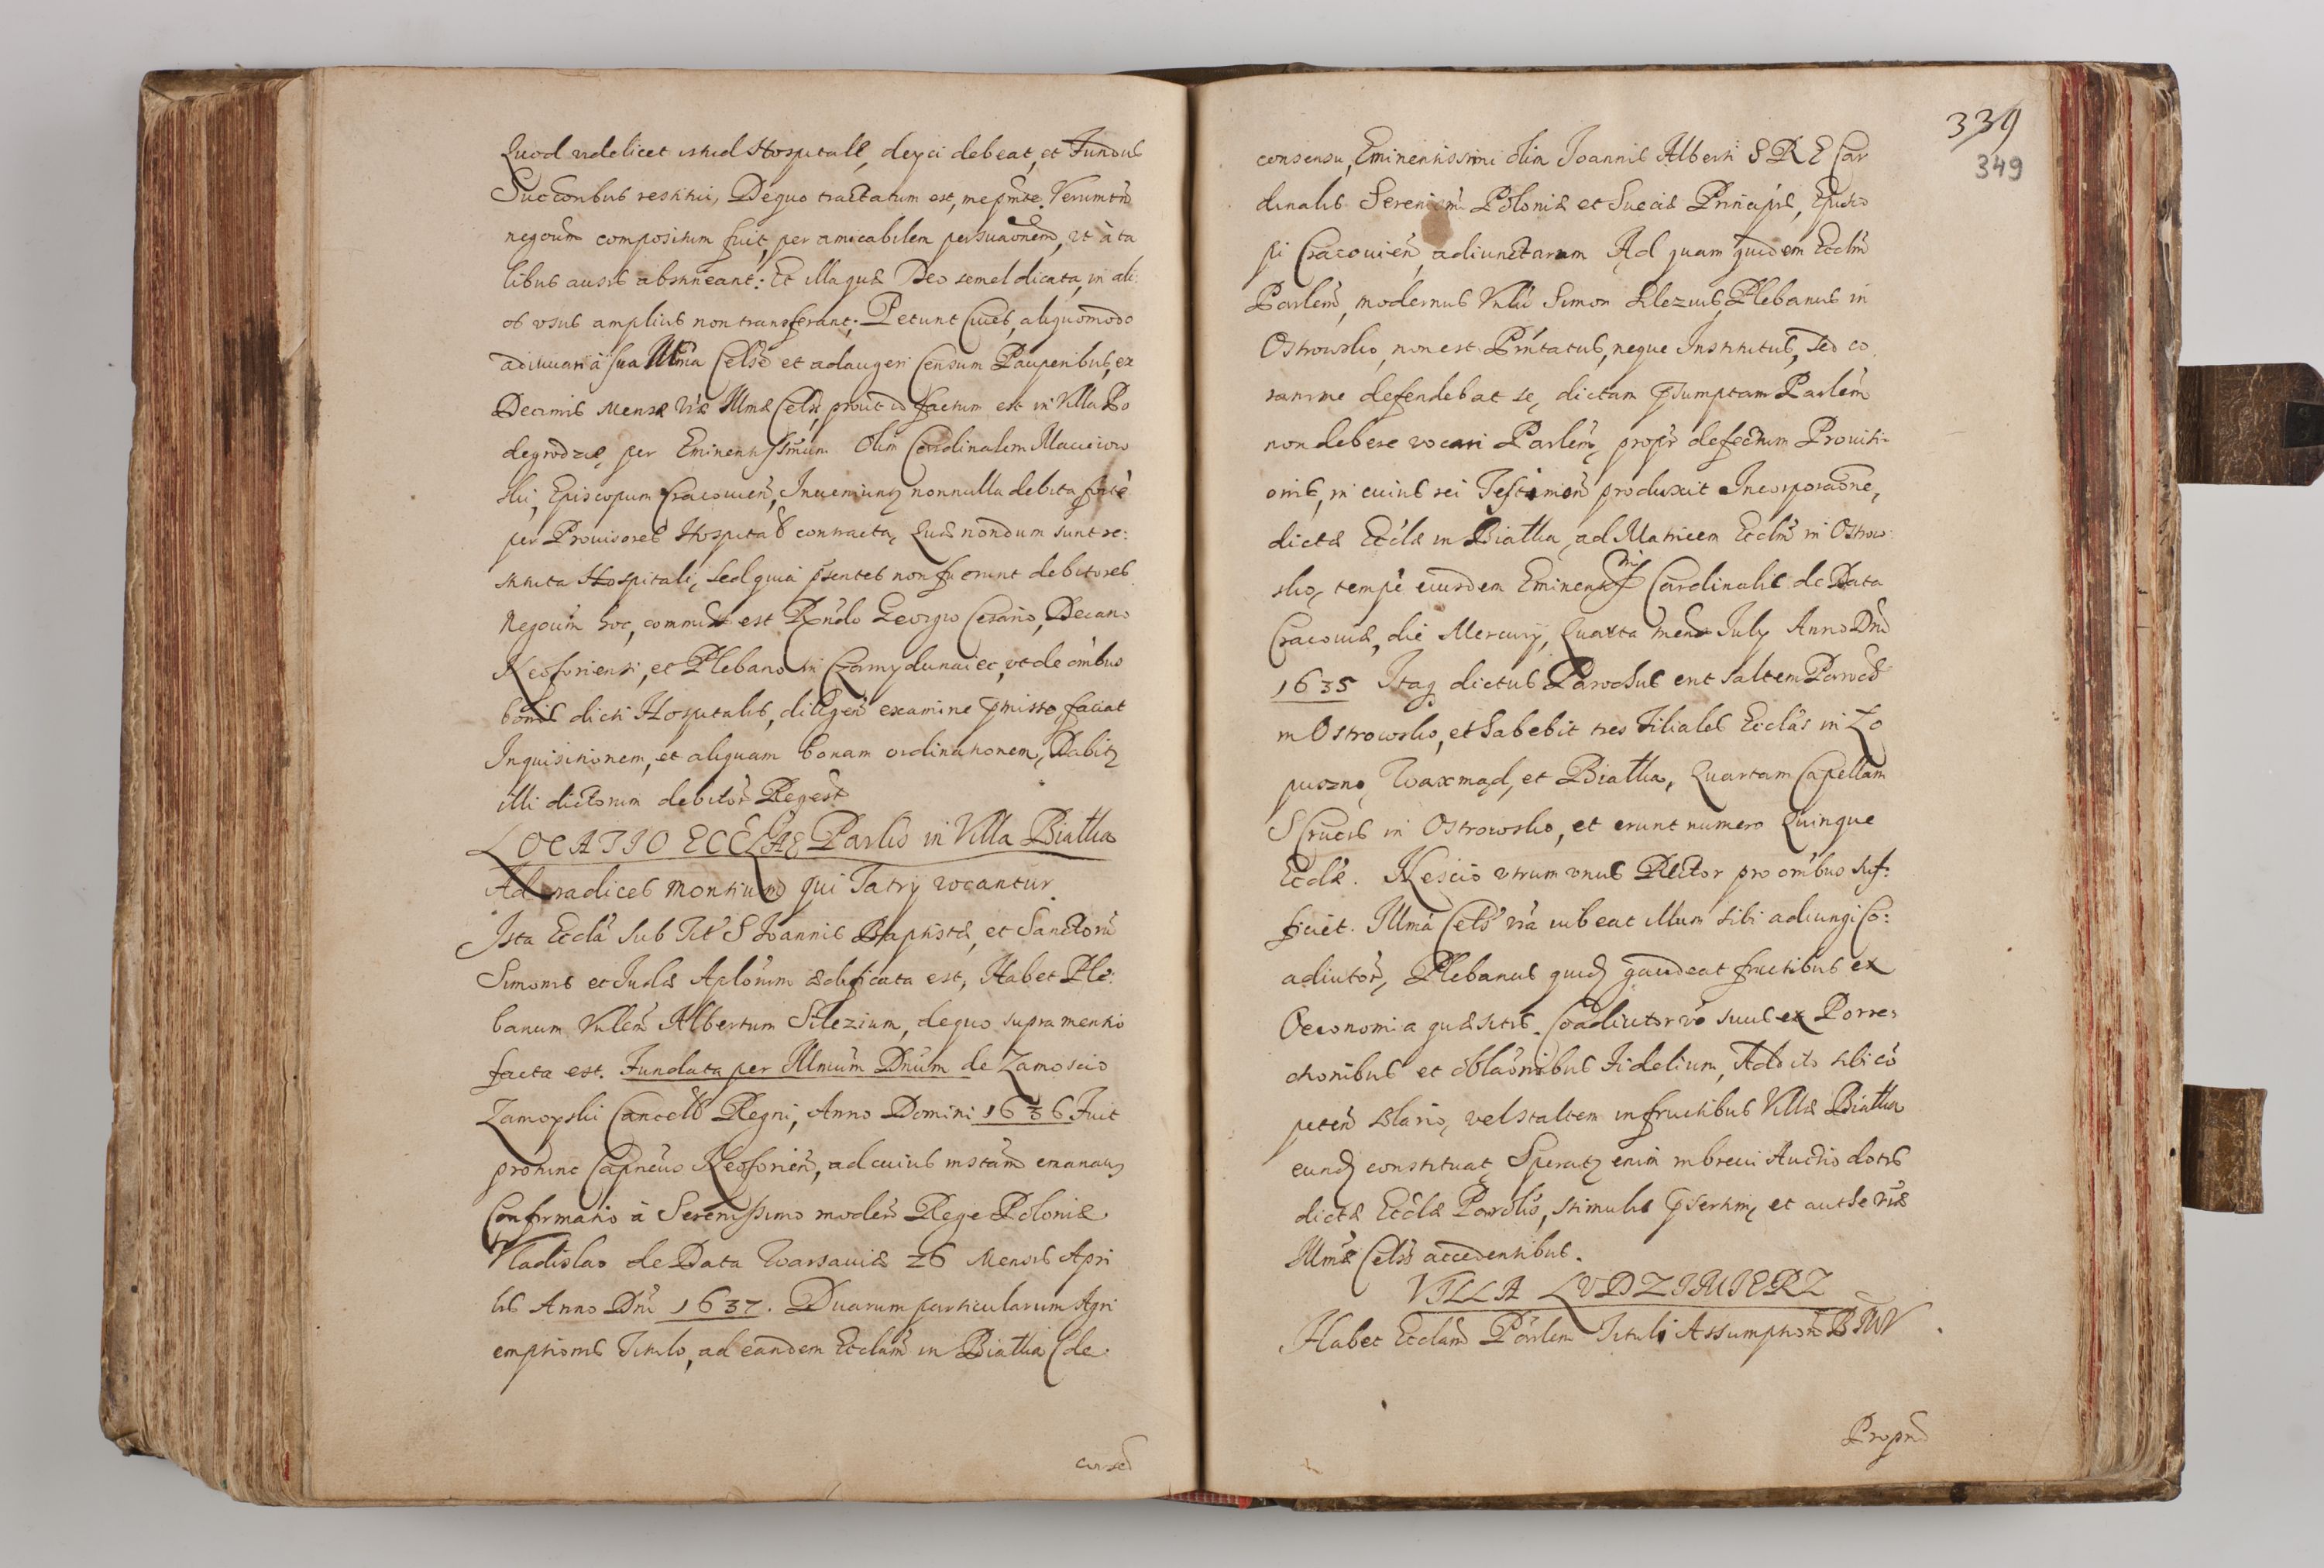 Quod videlicet istud Hospitale, deyci debeat, et Fundus
Succonbus restitui, De quo tractatum est, me pnte. Verumtn
negoum compositum fuit, per amicabilem persuaonem, ut à ta
libus ausis abstineant: Et illa quæ Deo semel dicata, in ali:
os usus amplius non transferant; Petunt Cives, aliquomodo
adiuuari à sua Illma Celsne et adaugeri Censum Pauperibus, ex
Decimis Mensæ Vræ Illmæ Celsis, prout id factum est in Villa Po
degrodzie, per Eminentissimum Olim Cardinalem Macieiow
ski, Episcopum Cracouien, Inueniunt nonnulla debita forte
per Prouisores Hospitalis contracta, Quæ nondum sunt re:
stituta Hospitali, sed quia pſentes non fuerunt debitores
Negoum hoc, commissum est Rndo Georgio Cesario, Decano
Neoforiensi, et Plebano in Czarnydunaiec, ut de omibus
bonis dicti Hospitalis, diligen examine pmisso, faciat
Inquisitionem, et aliquam bonam ordinationem, Dabitz
illi dictorum debitor Regest
LOCATIO ECCLÆ Parlis in Villa Białka
Ad radices montium qui Tatry vocantur
Ista Eccla sub Tit S Ioannis Baptistæ, et Sanctoru
Simonis et Iudæ Aplorum ædificata est, Habet Ple:
banum Vnlem Albertum Silezium, de quo supra mentio
facta est. Fundata per Illmum Dnum de Zamoscio
Zamoyski Cancell Regni, Anno Domini 1636 Fuit
protunc Capneus Neoforien, ad cuius instam emanauz
Confirmatio à Serenissimo modern Rege Poloniæ
Vladislao de Data Warsauiæ 26 Mensis Apri
lis Anno Dni 1637. Duarum particularum Agri
emptionis Titulo, ad eandem Ecclam in Białka (de:
339
349
consensu, Eminentissimi olim Joannis Alberti S R E Car
dinalis Serenismi Poloniæ et Sueciæ Principis, Episco
pi Cracouien, adiunctarum Ad quam quidem Ecclm
Parlem, modernus Vnlis Simon Silezius, Plebanus in
Ostrowsko, non est Pntatus, neque Institutus, sed co
ram me defendebat se, dictam psumptam Parlem
non debere vocari Parlem, propr defectum Prouisi
onis, in cuius rei Testimon produxit Incorporaone,
dictæ Ecclæ in Białka, ad Matricem Ecclm in Ostrow:
sko, tempe eiusdem Eminentissmi Cardinalis de Data
Cracouiæ, die Mercurÿ, Quarta mens July Anno Dni
1635 Itaq dictus Parochus erit saltem Paroch
in Ostrowsko, et habebit tres Filiales Ecclas in Ło
puszno, Waxmąd, et Białka, Quartam Capellam
S Crucis in Ostrowsko, et erunt numero Quinque
Ecclæ. Nescio utrum unus Rector pro omibus suf:
ficiet. Illma Cels vra iubeat illum sibi adiungi Co:
adiutor, Plebanus quid gaudeat fructibus ex
Oeconomia quæsitis. Coadiutor vo suus ex Porre:
ctionibus et oblaonibus Fidelium, Addito sibi co
peten slario, vel saltem in fructibus Villæ Białka
eund constituat, Speratz enim in breui Auctio dotis
dictæ Ecclæ Parolis, stimulis psertim, et authe vræ
Illmæ Cels accedentibus.
VILLA LUDZIMIERZ
Habet Ecclam Parlem Tituli Assumption B M V.
Propn